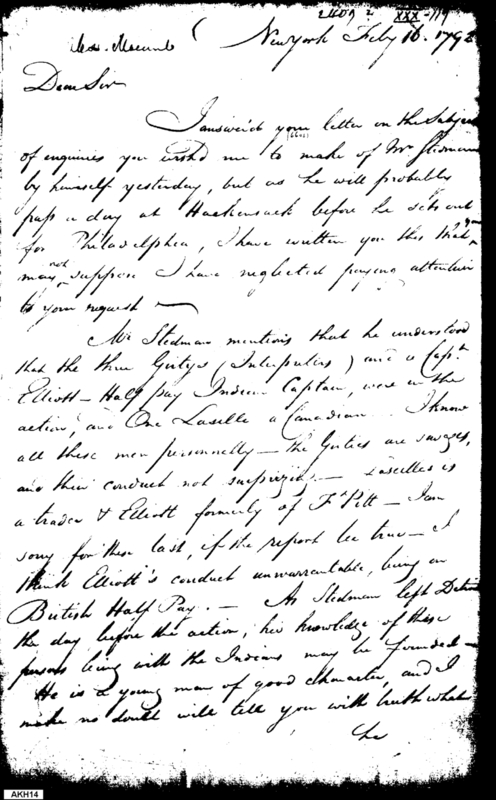 2409 2 XXX-119
Mr. Macomb
New york Feby 16. 1792
Dear Sir
I answerd your letter on the Subject
of enquiries you wishd me to make of Mr Stedman
by himself yesterday, but as he will probably
pass a day at Hackensack before he sets out
for Philadelphia, I have written you this that you
may not suppose I have neglected paying attention
to your request —
Mr Stedman mentions that he understood
that the three Girtys (Interpreters) and a Capt.
Elliott — Half pay Indian Captain, were in the
action, and One Laselle a Canadian — I know
all these men personnelly — the Girties are savages,
and their conduct not surprizing — Lascelles is
a trader & Elliott formerly of Ft Pitt — I am
sorry for these last, if the report be true — I
think Elliott's conduct unwarrantable, being on
British Half Pay. — As Stedman left Detroit
the day before the action, his knowledge of these
persons being with the Indians may be founded —
He is a young man of good character, and I
make no doubt will tell you with truth what
he
AKH14